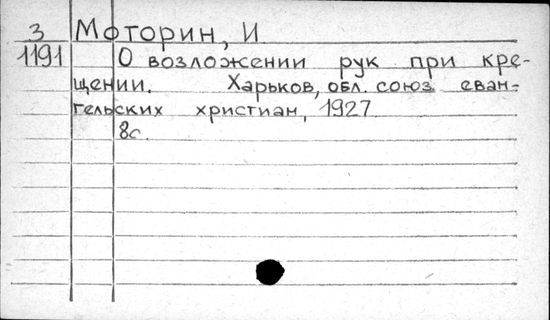 3 Моторин, И
1191 О возложении рук при кре-
щении. Харьков, обл. союз еван-
гельских христиан, 1927
8с.